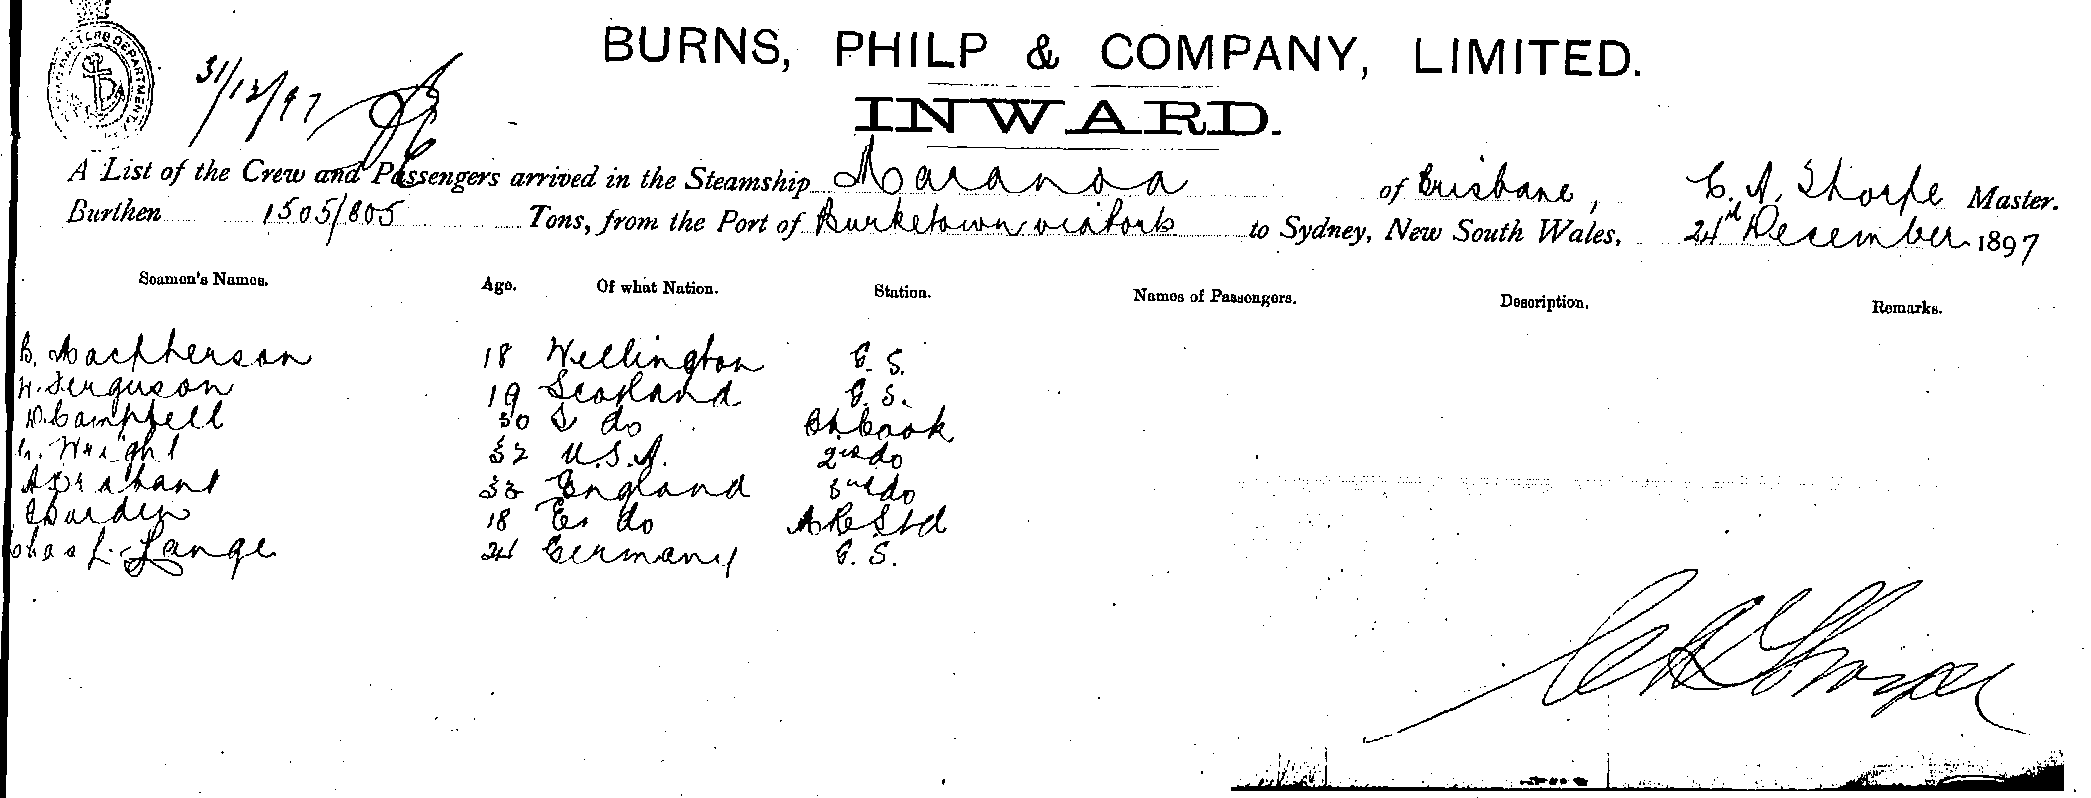 BURNS, PHILP & COMPANY, LIMITED.
31/12/97
INWARD.
A List of the Crew and Passengers arrived in the Steamship Maranoa of Brisbane, C. A. Thorpe Master.
Burthen 1505/805 Tons, from the Port of Burketown via Ports to Sydney, New South Wales, 24th December 1897
Seamen's Names. Age. Of what Nation. Station. Names of Passengers. Description. Remarks.
B. Macpherson 18 Wellington G. S.
Ferguson 19 Scotland G. S.
D. Campbell 30 S do Ch Cook
Wright 32 U.S.A. 2nd do
33 England 3rd do
18 E. do
Chas L. Lange 24 Germany G. S.
C A Thorpe